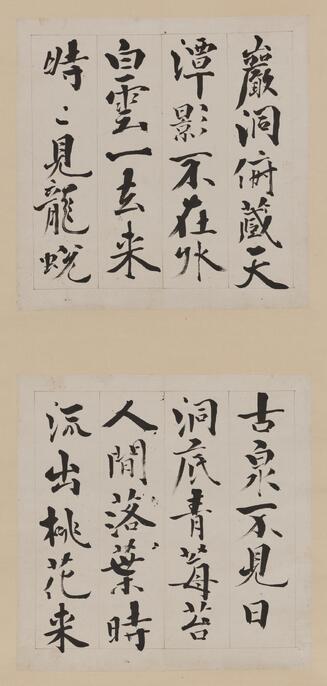 巖洞俯藏天
潭影不在外
白雲一去来
時〻見龍蛻
古泉不見日
洞底青莓苔
人間落葉時
流出桃花来